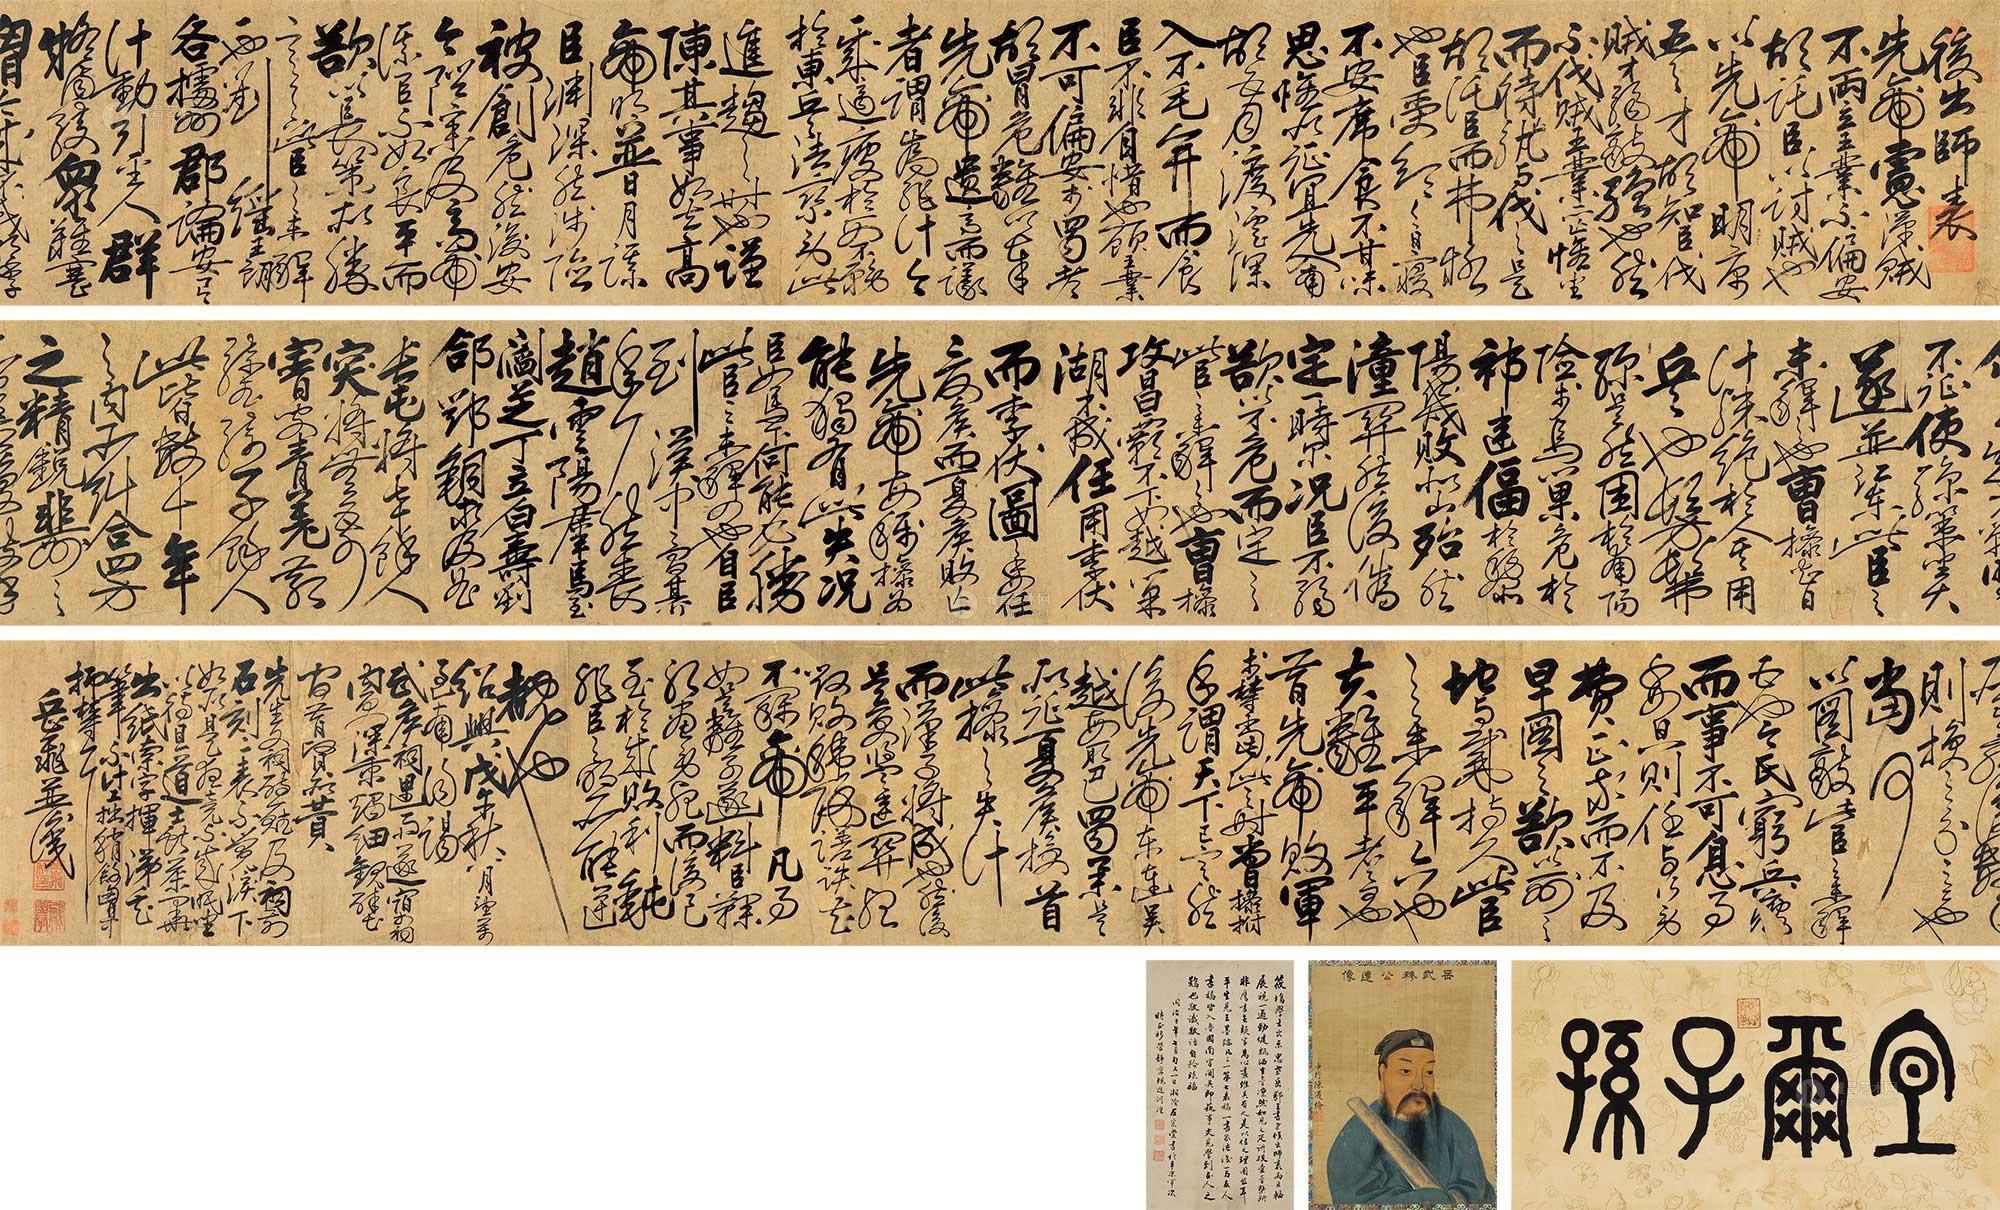 後出師表
先帝慮漢賊
不兩立王業不偏安
故託臣以討賊也
以先帝明
臣之才故知臣伐
賊才弱敵強也然
不伐賊王業亦亡惟坐
而待亡孰與伐之是
故託臣而弗疑
也臣受命之日寢
不安席食不甘味
思惟北征宜先入南
故五月渡瀘深
入不毛并日而食
臣非不自惜也顧王業
不可偏安於蜀都
故冒危難以奉
先帝遺意而議
者謂為非計今
賊適疲於西又務
於東兵法乘勞此
進趨之時也謹
陳其事如左高
帝明並日月謀
臣淵深然涉險
被創危然後安
今陛下未及高帝
謀臣不如良平而
欲以長策取勝
坐定天下此臣之未解
一也劉繇王朗
各據州郡論安言
計動引聖人群
疑滿腹眾難塞
胸今歲不戰明年
不征使孫策坐大
遂並江東此臣之
未解二也曹操智
計殊絕於人其用
兵也髣髴
孫吳然困於南陽
險於烏巢危於
祁連偪於黎
陽幾敗北山殆死
潼關然後偽
定一時爾況臣才弱
欲以不危而定之
此臣之未解三也曹操
五攻昌霸不下四越巢
湖不成任用李伏
而李伏圖之委任
夏侯而夏侯敗亡
先帝每稱操為
能猶有此失況
臣駑下何能必勝
此臣之未解四也自臣
到漢中中間期
年耳然喪
趙雲陽羣馬玉
閻芝丁立白壽劉
郃鄧銅等及曲
長屯將七十餘人
突將無前
賨叟青羌散
騎武騎一千餘人
此皆數十年
之內所糾合四方
之精銳非一州之
所有若復數年
則損三分之二也
當何
以圖敵此臣之未解
五也今民窮兵疲
而事不可息事
不可息則住與行勞
費正等而不及
早圖之欲以一州之
地與賊持久此臣
之未解六也
夫難平者事也
昔先帝敗軍
於楚當此之時曹操拊
手謂天下已定然
後先帝東連吳
越西取巴蜀舉兵
北征夏侯授首
此操之失計
而漢事將成也然後
吳更違盟關羽
毀敗秭歸蹉跌曹
丕稱帝凡事
如是難可逆料臣鞠
躬盡力死而後已
至於成敗利鈍
非臣之明所能逆
覩也
紹興戊午秋八月望前
過南陽謁
武侯祠遇雨遂宿於祠
內更深秉燭細觀壁
間昔賢所贊
先生文詞詩賦及祠前
石刻二表不覺淚下
如雨是夜竟不成眠坐
以待旦道士獻茶畢
出紙索字揮涕走
筆不計工拙稍舒胸中
抑鬱耳
岳飛並識
宜爾子孫
岳武穆公遺像